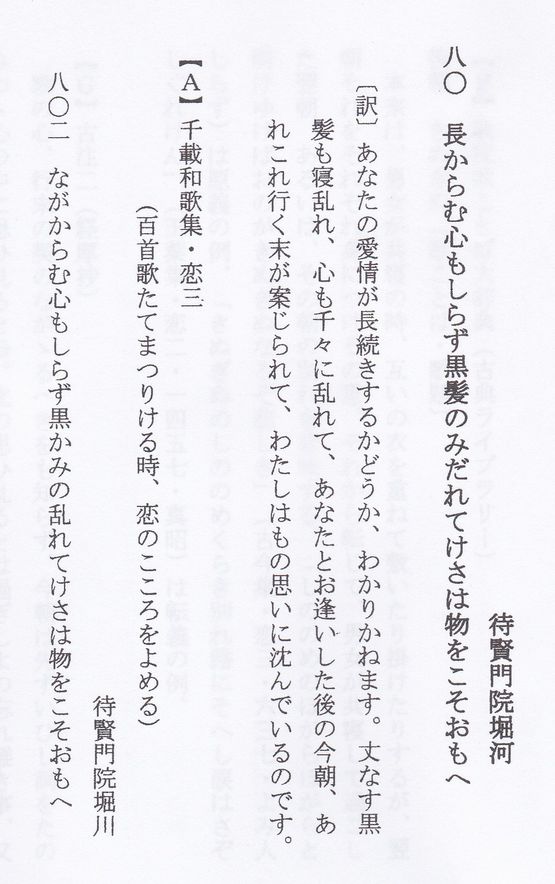 待賢門院堀河
八〇　長からむ心もしらず黒髪のみだれてけさは物をこそおもへ
〔訳〕あなたの愛情が長続きするかどうか、わかりかねます。丈なす黒
髪も寝乱れ、心も千々に乱れて、あなたとお逢いした後の今朝、あ
れこれ行く末が案じられて、わたしはもの思いに沈んでいるのです。
【A】千載和歌集・恋三
（百首歌たてまつりける時、恋のこころをよめる）
待賢門院堀川
八〇二　ながからむ心もしらず黒かみの乱れてけさは物をこそおもへ